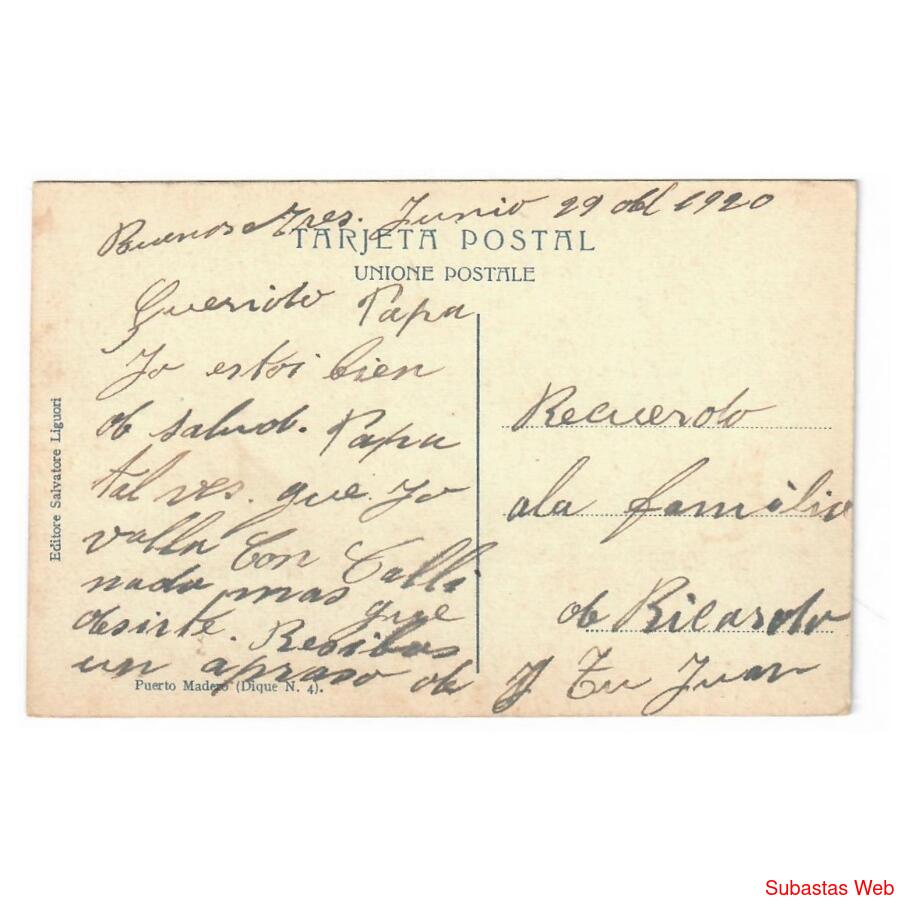 Buenos Ayres. Junio 29 del 1920
TARJETA POSTAL
UNIONE POSTALE
Querido Papa
Jo estoi bien
de salud. Papa
tal ves. que Jo
valla Con
nada mas que
desirte. Resibas
un apraso de
Recuerdo
ala familia
de Ricardo
J Tu Juan
Puerto Madero (Dique N. 4).
Editore Salvatore Liguori
Subastas Web